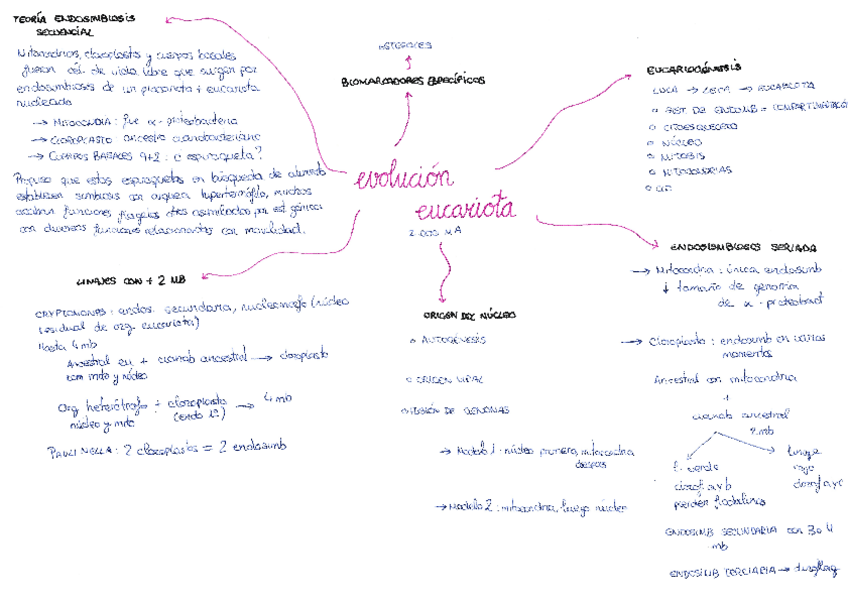 TEORÍA ENDOSIMBIOSIS
SECUENCIAL
Mitocondrias, cloroplastos y cuerpos basales
fueron cél. de vida libre que surgen por
endosimbiosis de un procariota + eucariota
nucleado
→ MITOCONDRIA: fue α-proteobacteria
→ CLOROPLASTO ancestro cianobacteriano
→ CUERPOS BASALES 9+2: ¿espiroqueta?
Propuso que estas espiroquetas en búsqueda de alimento
establecen simbiosis con arquea hipertermófila, muchos
funciones
con diversas funciones relacionadas con movilidad.
BIOMARCADORES ESPECÍFICOS
evolución
eucariota
2.000 MA
EUCARIOGÉNESIS
LUCA → LECA → EUCARIOTA
o SIST. DE ENDOMB = COMPARTIMENTACIÓN
o CITOESQUELETO
o NÚCLEO
o MITOSIS
o MITOCONDRIAS
LINAJES CON + 2 MB
CRYPTOMONAS: endos. secundaria, nucleomorfo (núcleo
residual de org. eucariota)
Hasta 4 mb
Ancestral eu + cianob ancestral → cloroplasto
con mito y núcleo
Org heterótrofo + cloroplasto → 4 mb
núcleo y mito (endo 1ª)
PAULINELLA: 2 cloroplastos = 2 endosimb
ORIGEN DEL NÚCLEO
o AUTOGÉNESIS
o ORIGEN VIRAL
o FUSIÓN DE GENOMAS
→ Modelo 1: núcleo primero, mitocondria
después
→ Modelo 2: mitocondria, luego núcleo
ENDOSIMBIOSIS SERIADA
→ Mitocondria: única endosimb
↓ tamaño de genoma
de α-proteobact
→ Cloroplasto: endosimb en varios
momentos
Ancestral con mitocondria
+
cianob ancestral
2 mb
l. verde
clorof a y b
pierden ficobilinas
linaje
rojo
clorof a y c
ENDOSIMB SECUNDARIA con 3 o 4
mb
ENDOSIMB TERCIARIA → dinoflag